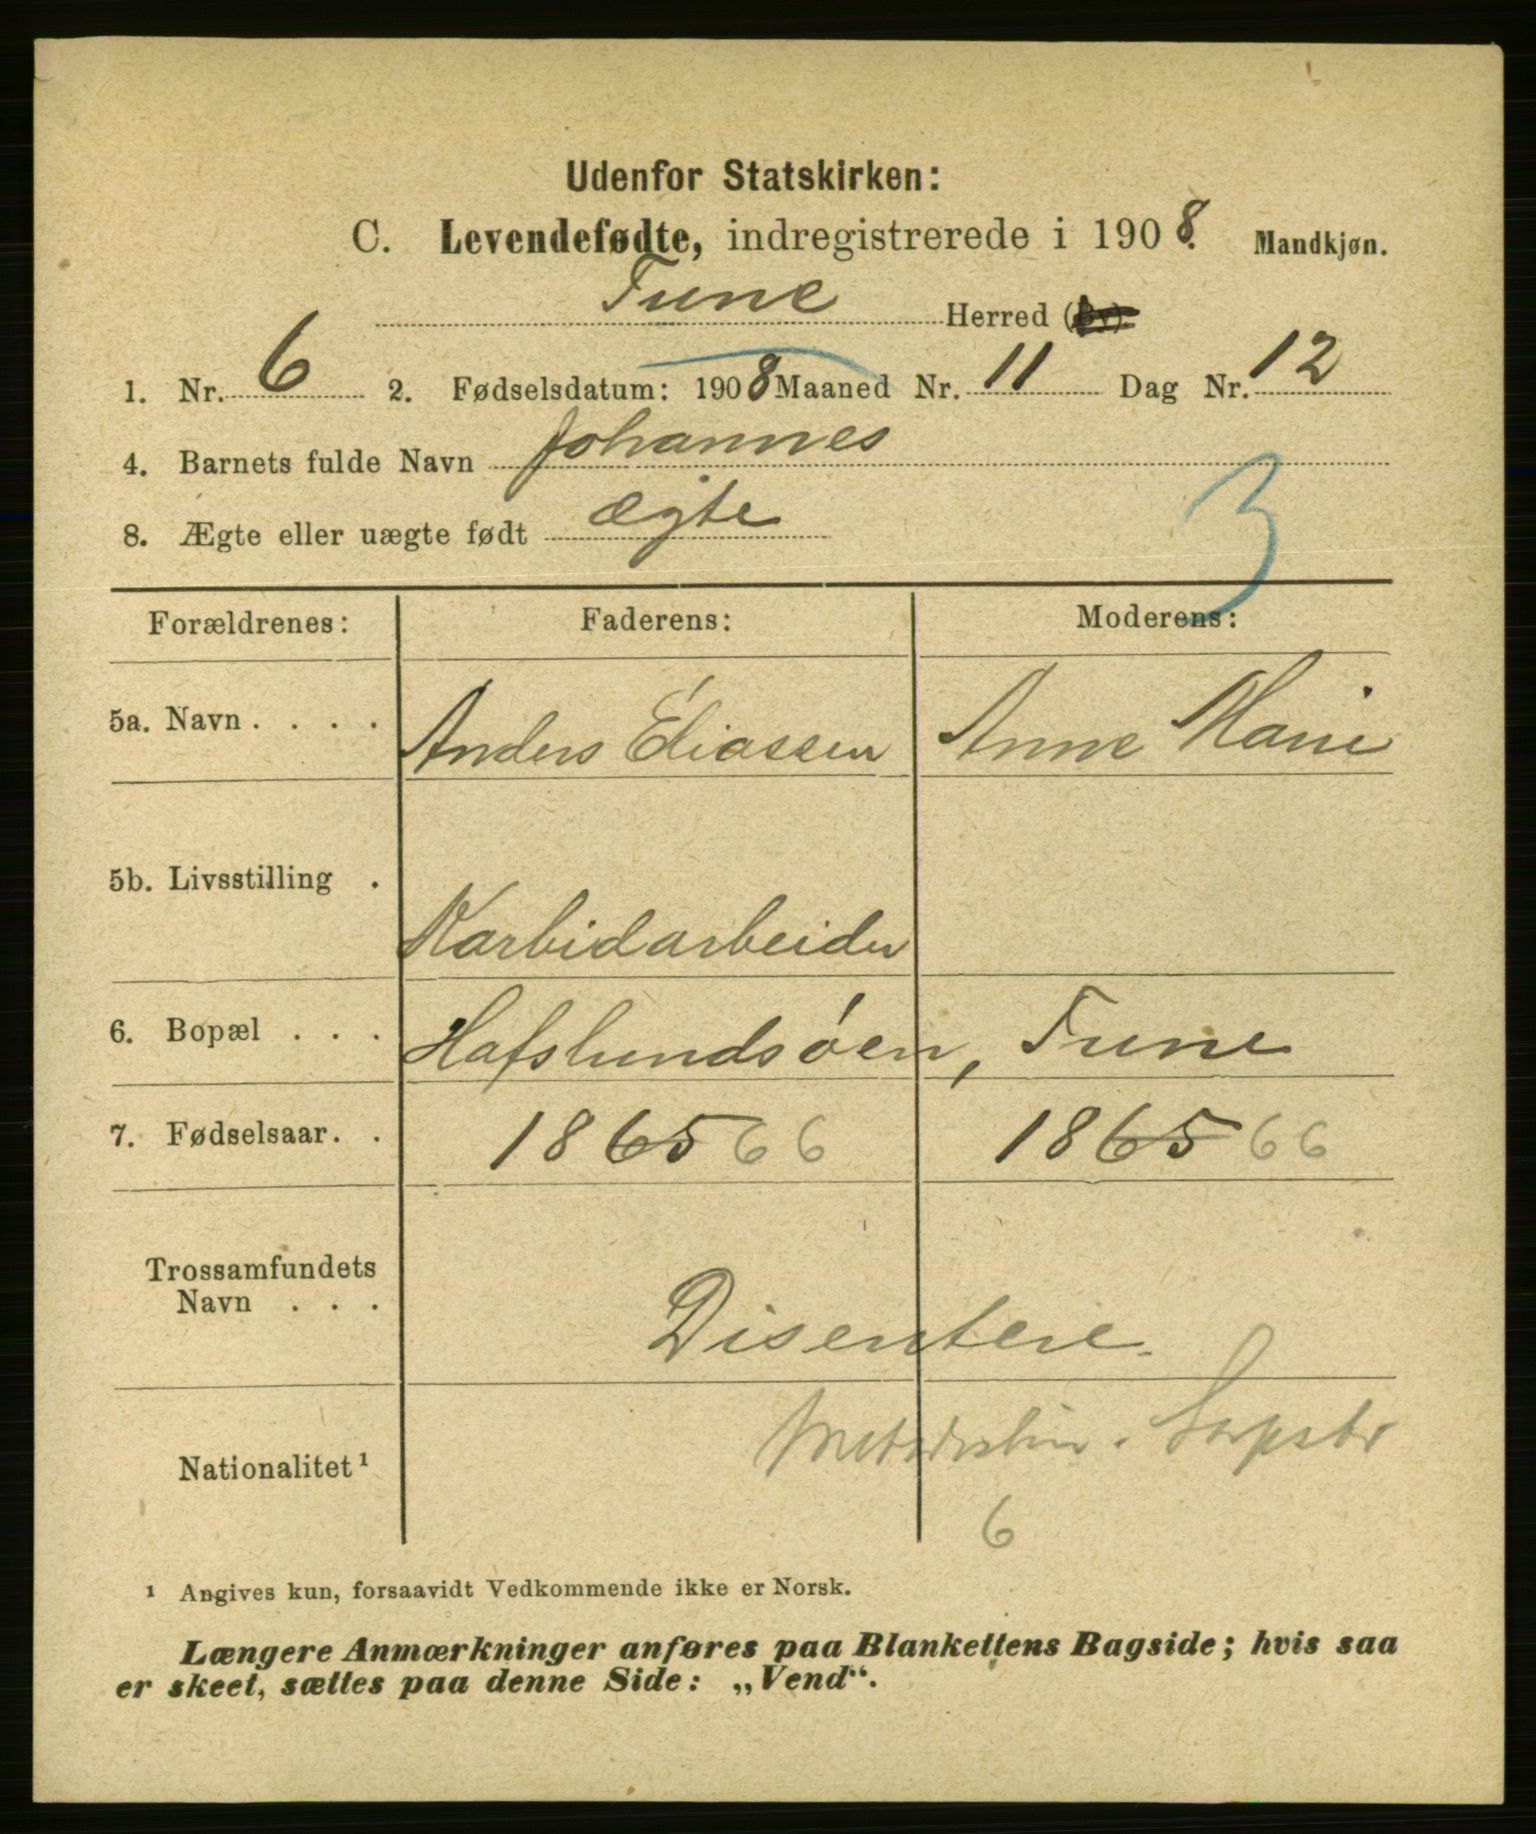 Udenfor Statskirken:
C. Levendefødte, indregistrerede i 1908. Mandkjøn.
Tune Herred (By).
1. Nr. 6 2. Fødselsdatum: 1908 Maaned Nr. 11 Dag Nr. 12
4. Barnets fulde Navn Johannes
3
8. Ægte eller uægte født ægte
Forældrenes: Faderens: Moderens:
5a. Navn . . . . Anders Eliassen Anne Marie
5b. Livsstilling . Karbidarbeider
6. Bopæl . . . Hafslundsöen, Tune
7. Fødselsaar. . 1865 66 1865 66
Trossamfundets
Navn . . . Disentere.
Nationalitet¹ Sarpsbr
6
¹ Angives kun, forsaavidt Vedkommende ikke er Norsk.
Længere Anmærkninger anføres paa Blankettens Bagside; hvis saa
er skeet, sættes paa denne Side: „Vend“.